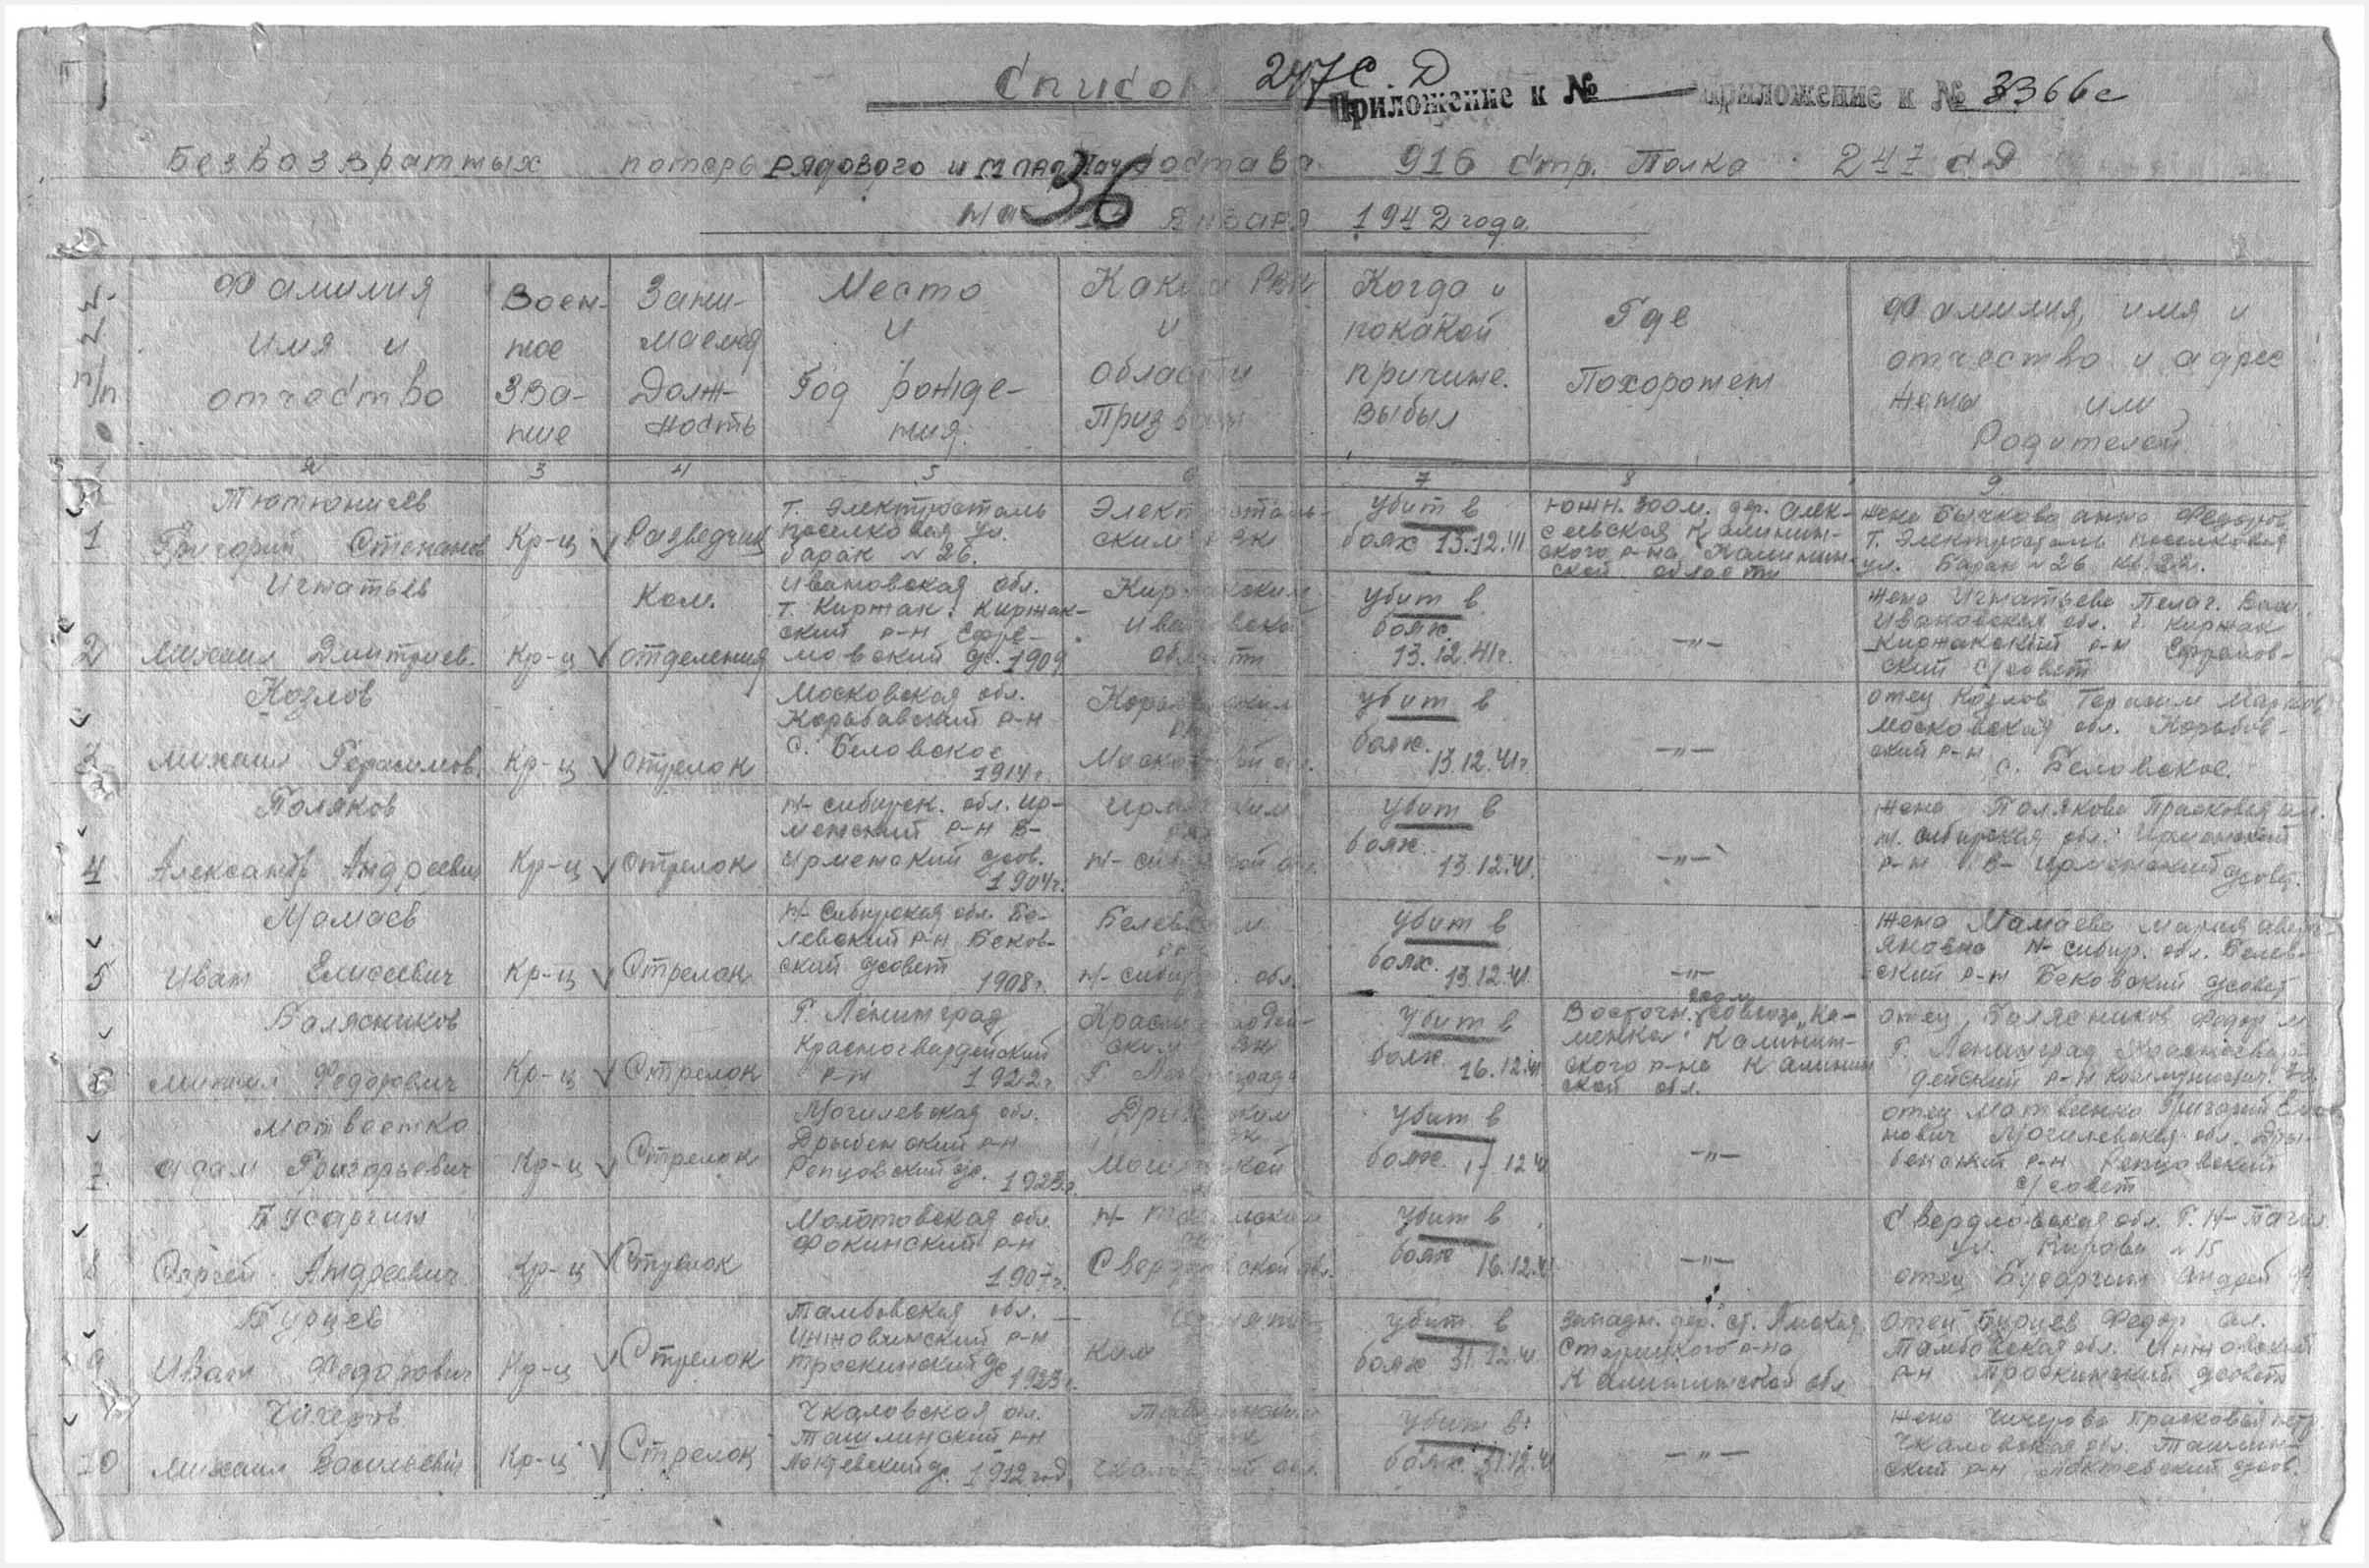 Список 247 С.Д
Приложение к № Приложение к № 3366с
Безвозвратных потерь рядового и млад нач состава 916 стр. Полка 247 с.Д
на 36 Января 1942 года
№ № п/п
Фамилия имя и отчество
Военное звание
Занимаемая Должность
Место и Год рождения.
Каким РВК и области Призван
Когда и по какой причине выбыл
Где Похоронен
Фамилия, имя и отчество и адрес жены или Родителей
2 3 4 5 6 7 8 9
1 Тютюничев Григорий Степанов
Кр-ц Разведчик
г. Электросталь поселковая ул. барак № 26.
Убит в боях 13.12.41
южн. 300 м. дер. Алексеевская Калининского р-на Калининской области
жена Бычкова Анна Федоров г. Электросталь поселковая ул. Барак № 26 кв.
2 Игнатьев Михаил Дмитриев.
Кр-ц Ком. отделения
Ивановская обл. г. Киржак. Киржакский р-н Ефремовский с/с. 1909
Ивановской области
Убит в боях. 13.12.41г.
—"—
жена Игнатьева Пелаг. Вас. Ивановская обл. г. Киржак Киржакский р-н Ефремовский с/совет
3 Козлов Михаил Герасимов.
Кр-ц Стрелок
Московская обл. Карабавский р-н с. Беловское 1914 г.
Московской обл.
Убит в боях. 13.12.41г
—"—
отец Козлов Герасим Марков Московская обл. с. Беловское.
4 Поляков Александр Андреевич
Кр-ц Стрелок
Н-сибирск. обл. Ирменский р-н В-Ирменский усов. 1904г.
Н-сибирской обл.
Убит в боях. 13.12.41.
—"—
жена Полякова Прасковья Н. сибирская обл. Ирменский р-н В-Ирменский усовет.
5 Мамаев Иван Елисеевич
Кр-ц Стрелок
Н-Сибирская обл. Белевский р-н Бековский усовет 1908г.
Н-сибирс. обл.
Убит в боях. 13.12.41
—"—
жена Мамаева Мария Н-сибир. обл. Белевский р-н Бековский усовет
6 Балясников Михаил Федорович
Кр-ц Стрелок
г. Ленинград Красногвардейский р-н 1922г
Убит в боях 16.12.41
Восточн. совхоза "Каменка" Калининского р-на Калинин ской обл.
отец Балясников Федор М. г. Ленинград Красногвардейский р-н
7 Матвеенко Адам Григорьевич
Кр-ц Стрелок
Могилевская обл. Дрыбенский р-н Репцовский с/с. 1923г.
Могилевской
Убит в боях. 17.12.41
—"—
отец Матвеенко Григорий Могилевская обл. Дрыбенский р-н Репцовский с/совет
8 Бусаргин Сергей Андреевич
Кр-ц Стрелок
Молотовская обл. Фокинский р-н 1907г.
Свердловской обл.
Убит в боях 16.12.41
—"—
Свердловская обл. г. Н-Тагил ул. Кирова № 15 отец Бусаргин Андрей
9 Бурцев Иван Федорович
Кр-ц Стрелок
Тамбовская обл. Инжавинский р-н Траскинский с/с 1923г.
убит в боях 31.12.41
Западн. дер. Ст. Ямская Старицкого р-на Калининской обл
отец Бурцев Федор Ал. Тамбовская обл. р-н Траскинский усовет
10 Чичеров Михаил Васильевич
Кр-ц Стрелок
Чкаловская обл. Ташлинский р-н Лактевский с/с. 1912 год
Чкаловской обл.
Убит в боях. 31.12.41
—"—
жена Чичерова Прасковья петр. Чкаловская обл. Ташлинский р-н Лактевский усов.